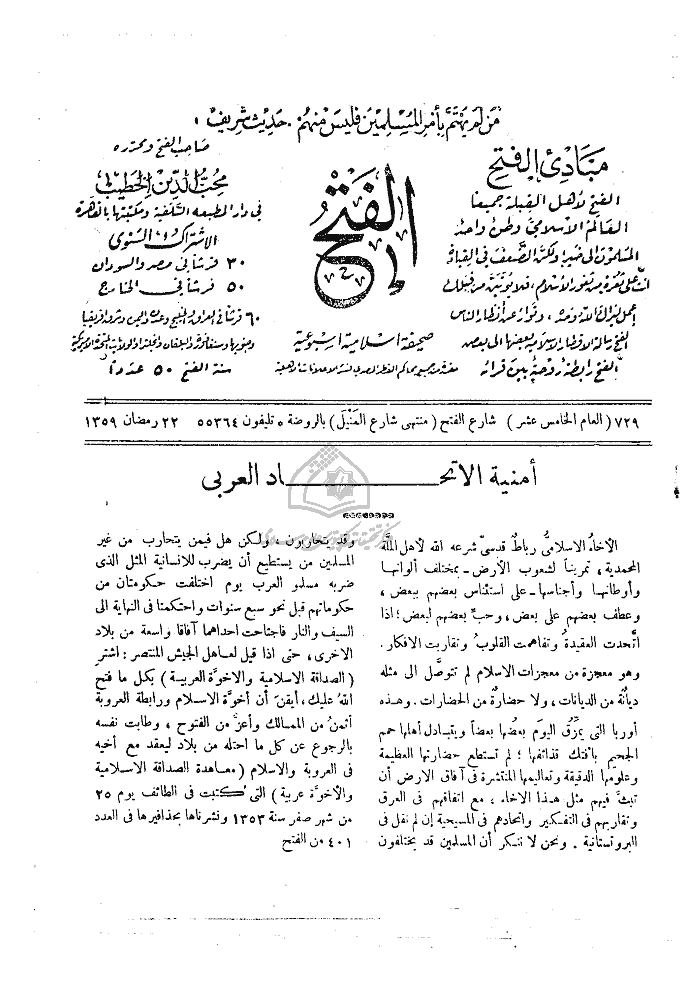 من لم يهتم بأمر المسلمين فليس منهم. حديث شريف
مبادئ الفتح
الفتح لأهل القبلة جميعا
العالم الإسلامي وطن واحد
المسلمون الى خير، ولكن الضعف في القيادة
أنت على ثغرة من ثغور الإسلام، فلا يؤتين من قبلك
الفتح رسالة الأقطار الإسلامية بعضها الى بعض
الفتح رابطة روحية بين قرائه
الفتح
صحيفة اسلامية اسبوعية
صاحب الفتح ومحرره
محب الدين الخطيب
في دار المطبعة السلفية ومكتبتها بالقاهرة
الاشتراك السنوي
٣٠ قرشا في مصر والسودان
٥٠ قرشا في الخارج
سنة الفتح ٥٠ عددا
٧٢٩ ( العام الخامس عشر ) شارع الفتح ( منتهى شارع المَنْيَل ) بالروضة ، تليفون ٥٥٣٦٤ ٢٢ رمضان ١٣٥٩
أمنية الاتحـــاد العربى
الأخاء الاسلامىُّ رباطٌ قدسىّ شرعه الله لأهل الملّة
المحمدية ، تمريناً لشعوب الأرض ـ بمختلف ألوانها
وأوطانها وأجناسها ـ على استئناس بعضهم ببعض ،
وعطف بعضهم على بعض ، وحبِّ بعضهم لبعض ؛ اذا
اتَّحدت العقيدةُ وتفاهمت القلوبُ وتقاربت الافكار .
وهو معجزة من معجزات الاسلام لم تتوصَّل الى مثله
ديانةٌ من الديانات ، ولا حضارةٌ من الحضارات . وهذه
أوربا التى يمزِّقُ اليوم بعضُها بعضاً ويتبادل أهلها حمم
الجحيم بأفتك قذائفها ؛ لم تستطع حضارتها العظيمة
وعلومها الدقيقة وتعاليمها المنتشرة فى آفاق الارض أن
تبثَّ فيهم مثل هذا الاخاء ، مع اتفاقهم فى العرق
وتقاربهم فى التفكير واتحادهم فى المسيحية إن لم نقل فى
البروتستانية . ونحن لا ننكر أن المسلمين قد يختلفون
وقد يتحاربون . ولكن هل فيمن يتحارب من غير
المسلمين من يستطيع أن يضرب للانسانية المثل الذى
ضربه مسلمو العرب يوم اختلفت حكومتان من
حكوماتهم قبل نحو سبع سنوات واحتكمتا فى النهاية الى
السيف والنار فاجتاحت احداهما آفاقا واسعة من بلاد
الاخرى ، حتى اذا قيل لعاهل الجيش المنتصر : اشترِ
( الصداقة الاسلامية والاخوّة العربية ) بكل ما فتح
اللهُ عليك ، أيقنَ أن أخوّة الاسلام ورابطة العروبة
أثمنُ من الممالك وأعزُّ من الفتوح ، وطابت نفسه
بالرجوع عن كل ما احتله من بلاد ليعقد مع أخيه
فى العروبة والاسلام ( معاهدة الصداقة الاسلامية
والاخوّة عربية ) التى كُتبت فى الطائف يوم ٢٥
من شهر صفر سنة ١٣٥٣ ونشرناها بحذافيرها فى العدد
٤٠١ من الفتح